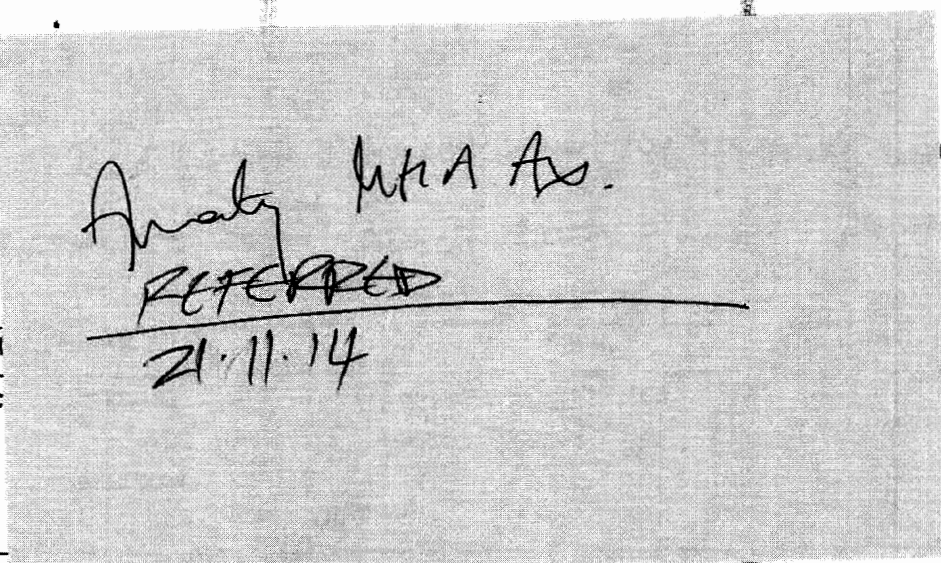 MHA Ax.
REFERRED
21.11.14